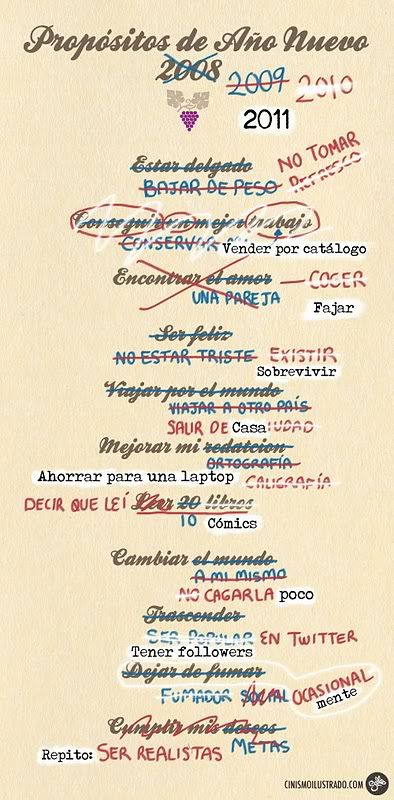 Propósitos de Año Nuevo
2008 2009 2010
2011
Estar delgado NO TOMAR
BAJAR DE PESO REFRESCO
Conseguir un mejor trabajo
CONSERVAR Vender por catálogo
Encontrar el amor — COGER
UNA PAREJA
Fajar
Ser feliz
NO ESTAR TRISTE EXISTIR
Sobrevivir
Viajar por el mundo
VIAJAR A OTRO PAÍS
SALIR DE Casa IUDAD
Mejorar mi redatcion
ORTOGRAFÍA
Ahorrar para una laptop CALIGRAFÍA
DECIR QUE LEÍ Leer 20 libros
10 Cómics
Cambiar el mundo
A MI MISMO
NO CAGARLA poco
Trascender
SER POPULAR EN TWITTER
Tener followers
Dejar de fumar
FUMADOR SOCIAL OCASIONAL
mente
Cumplir mis deseos
METAS
Repito: SER REALISTAS
CINISMOILUSTRADO.COM